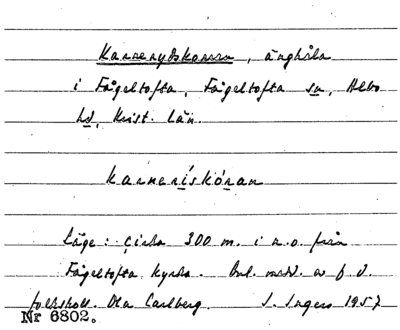 Karnerydskorran, änghåla
i Fågeltofta, Fågeltofta sn, Albo
hd, Krist. län.
karnerískóran
Läge: Cirka 300 m. i n.o. från
Fågeltofta kyrka. Enl. medd. av f. d.
folkskoll. Ola Carlberg. S. Ingers 1957
Nr 6802.